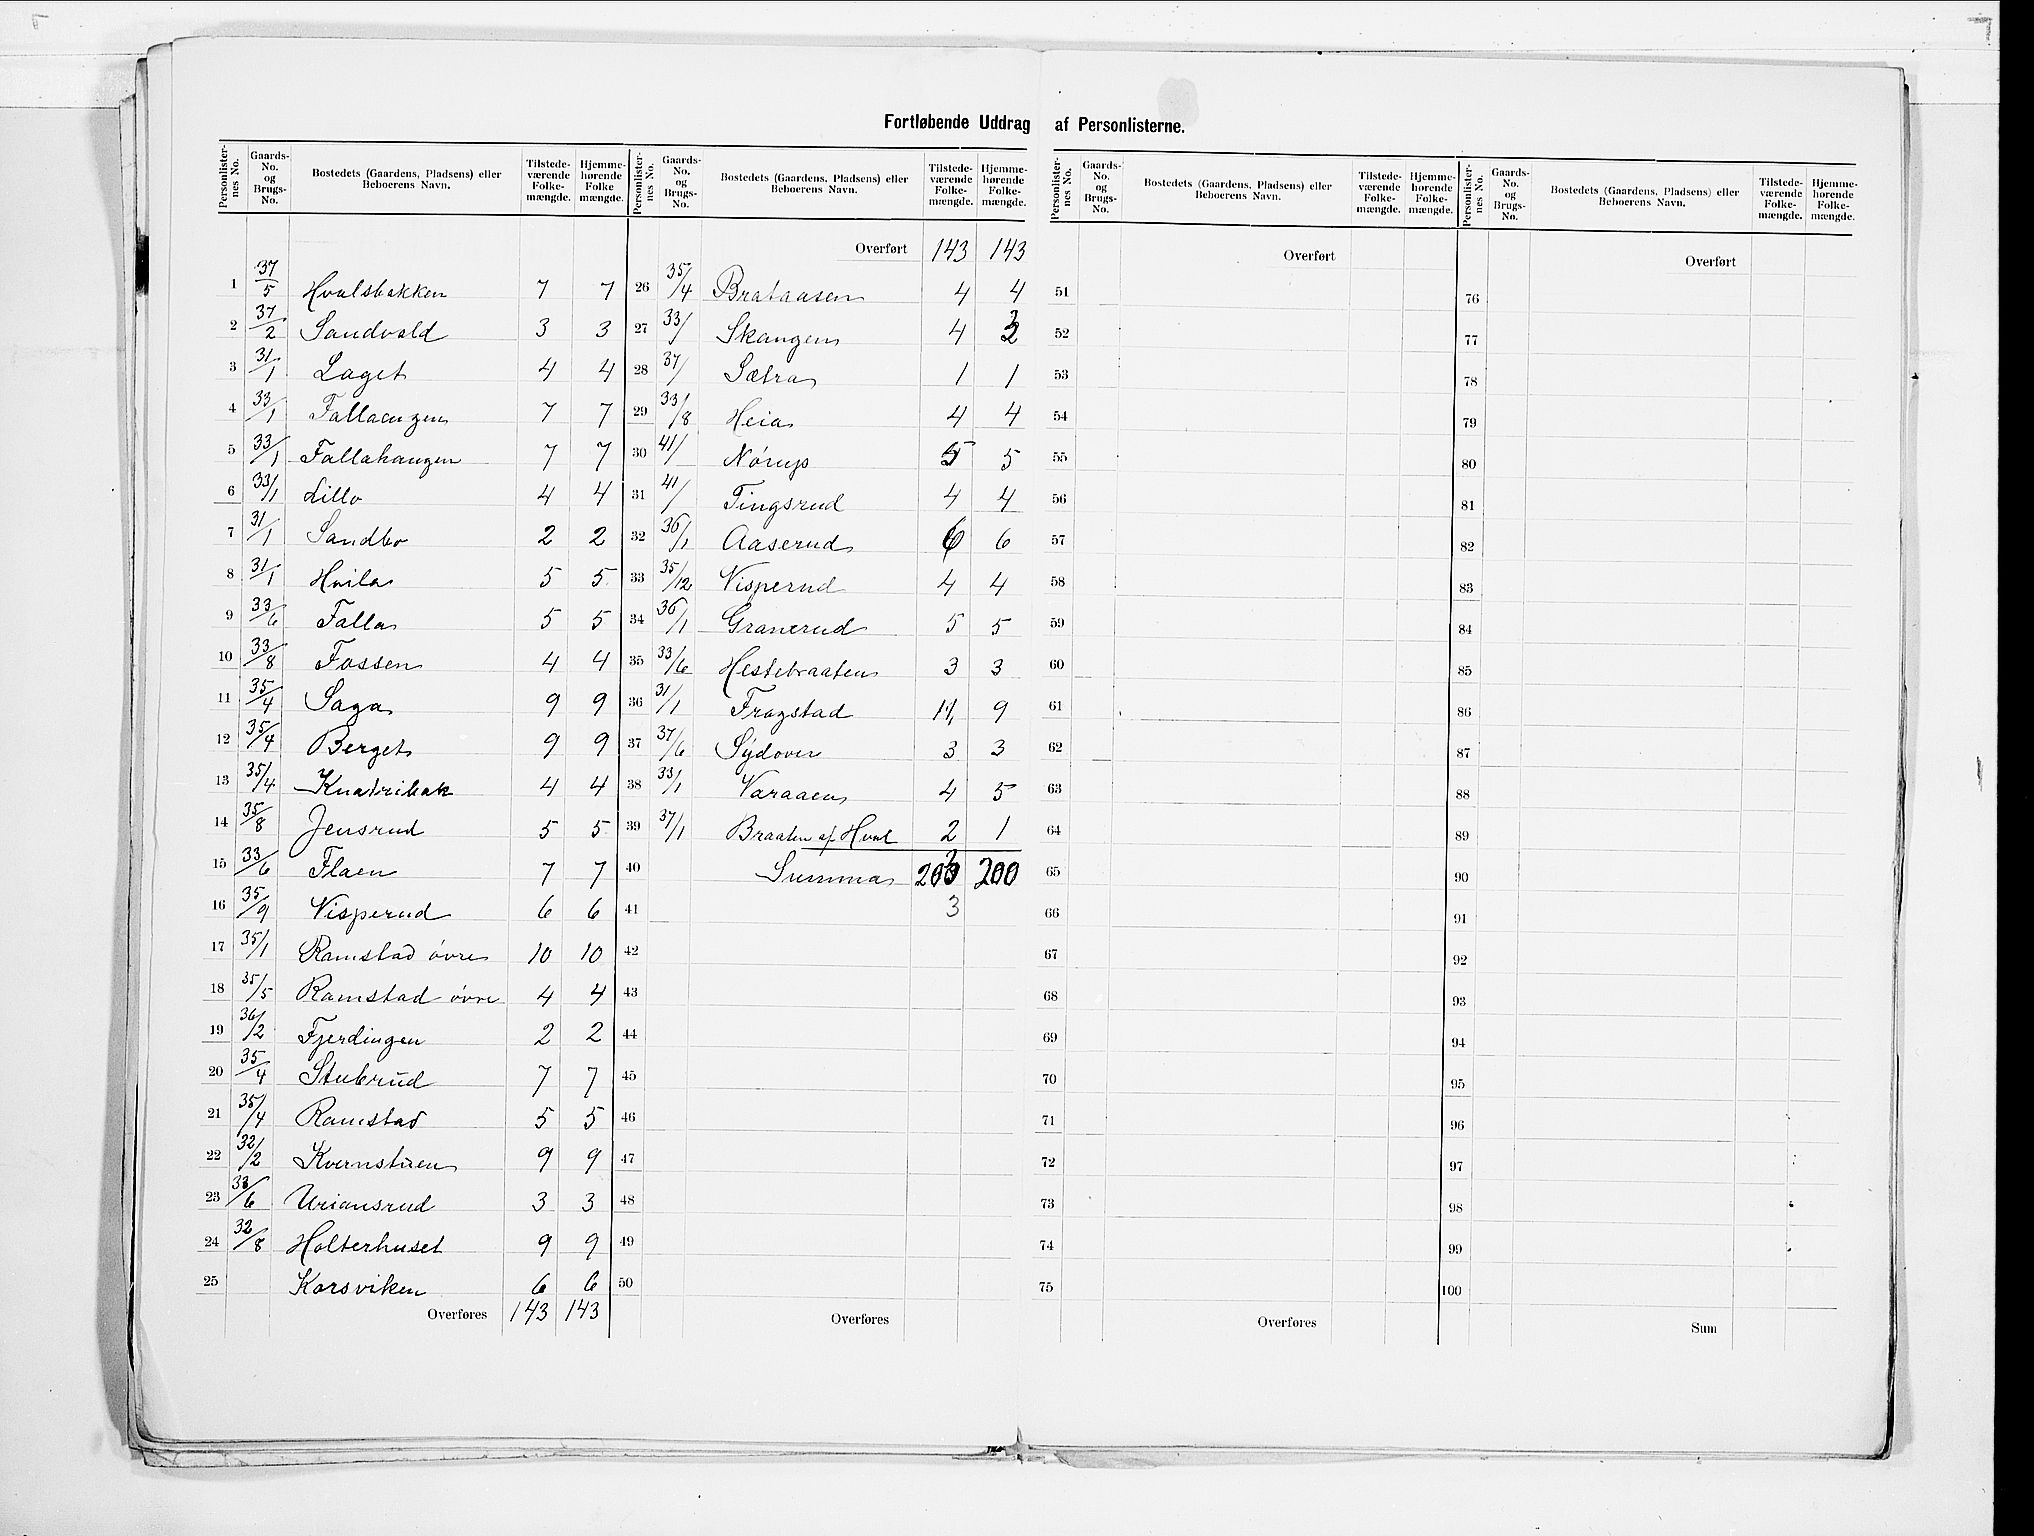 Fortløbende Uddrag af Personlisterne.
Personlisternes No. Gaards-No. og Brugs-No. Bostedets (Gaardens, Pladsens) eller Beboerens Navn. Tilstedeværende Folkemængde. Hjemmehørende Folkemængde.
1 37/5 Hvalsbakken 7 7
2 37/2 Sandvold 3 3
3 31/1 Laget 4 4
4 33/1 Fallaengen 7 7
5 33/1 Fallahaugen 7 7
6 33/1 Lillo 4 4
7 31/1 Sandbo 2 2
8 31/1 Hvila 5 5
9 33/6 Falla 5 5
10 33/8 Fossen 4 4
11 35/4 Saga 9 9
12 35/4 Berget 9 9
13 35/4 Knatribak 4 4
14 35/8 Jensrud 5 5
15 33/6 Flaen 7 7
16 35/9 Visperud 6 6
17 35/1 Ramstad övre 10 10
18 35/5 Ramstad övre 4 4
19 36/2 Fjerdingen 2 2
20 35/4 Stubrud 7 7
21 35/4 Ramstad 5 5
22 32/2 Kvernstuen 9 9
23 33/6 Uriansrud 3 3
24 32/8 Holterhuset 9 9
25 Korsviken 6 6
Overføres 143 143
Personlisternes No. Gaards-No. og Brugs-No. Bostedets (Gaardens, Pladsens) eller Beboerens Navn. Tilstedeværende Folkemængde. Hjemmehørende Folkemængde.
Overført 143 143
26 35/4 Brataasen 4 4
27 33/ Skaugen 4 3
28 37/ Sætra 1 1
29 33/8 Heia 4 4
30 41/ Nórup 5 5
31 41/ Tingsrud 4 4
32 36/1 Aaserud 6 6
33 35/12 Visperud 4 4
34 36/1 Granerud 5 5
35 33/6 Hestebraaten 3 3
36 31/1 Frogstad 11 9
37 37/6 Sydover 3 3
38 33/1 Varaaen 4 5
39 37/1 Braaten af Hval 2 1
40 Summa 203 200
41 3
42
43
44
45
46
47
48
49
50
Overføres
Personlisternes No. Gaards-No. og Brugs-No. Bostedets (Gaardens, Pladsens) eller Beboerens Navn. Tilstedeværende Folkemængde. Hjemmehørende Folkemængde.
Overført
51
52
53
54
55
56
57
58
59
60
61
62
63
64
65
66
67
68
69
70
71
72
73
74
75
Overføres
Personlisternes No. Gaards-No. og Brugs-No. Bostedets (Gaardens, Pladsens) eller Beboerens Navn. Tilstedeværende Folkemængde. Hjemmehørende Folkemængde.
Overført
76
77
78
79
80
81
82
83
84
85
86
87
88
89
90
91
92
93
94
95
96
97
98
99
100
Sum